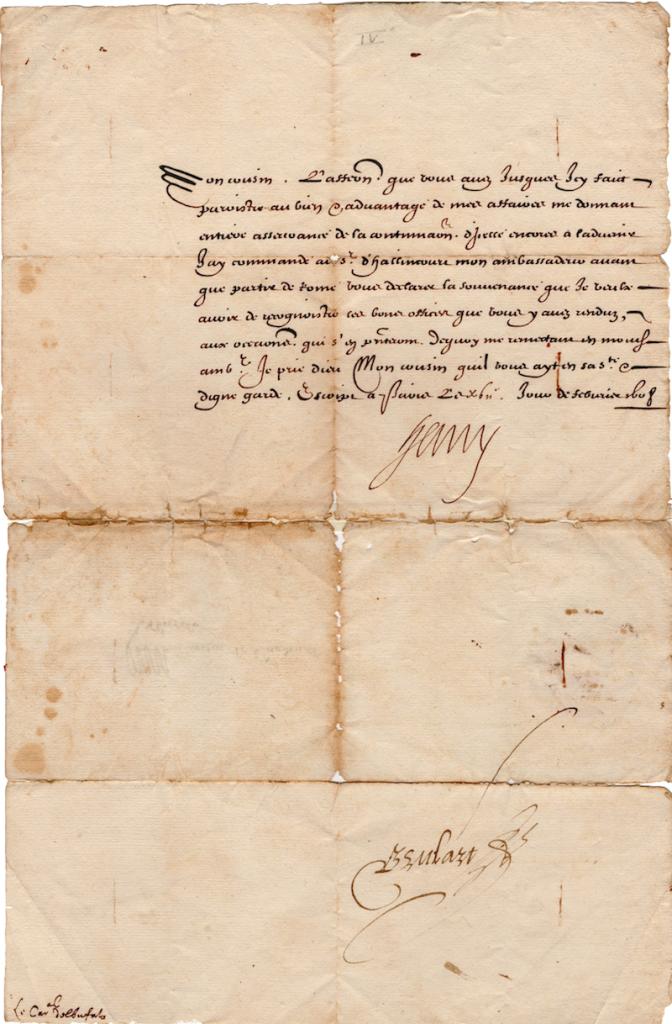 IV
Mon cousin. L'affeon. que vous avez Jusques Icy faict
paroistre au bien & advantage de mes affaires me donnant
entiere asseurance de la continuaon. d'Icelle encores a l'advenir
Jay commandé au sr. d'hallincourt mon ambassadeur avant
que partir de Rome vous declarer la souvenance que Je veulx
avoir de recognoistre les bons offices que vous y avez renduz,
aux occaons. qui s'en pnteront. Dequoy me remectant en mond.
ambr. Je prie dieu Mon cousin quil vous ayt en sa ste. &
digne garde. Escript a Paris Le Jour de febvrier 1608
Henry
Brulart
Le Caral.